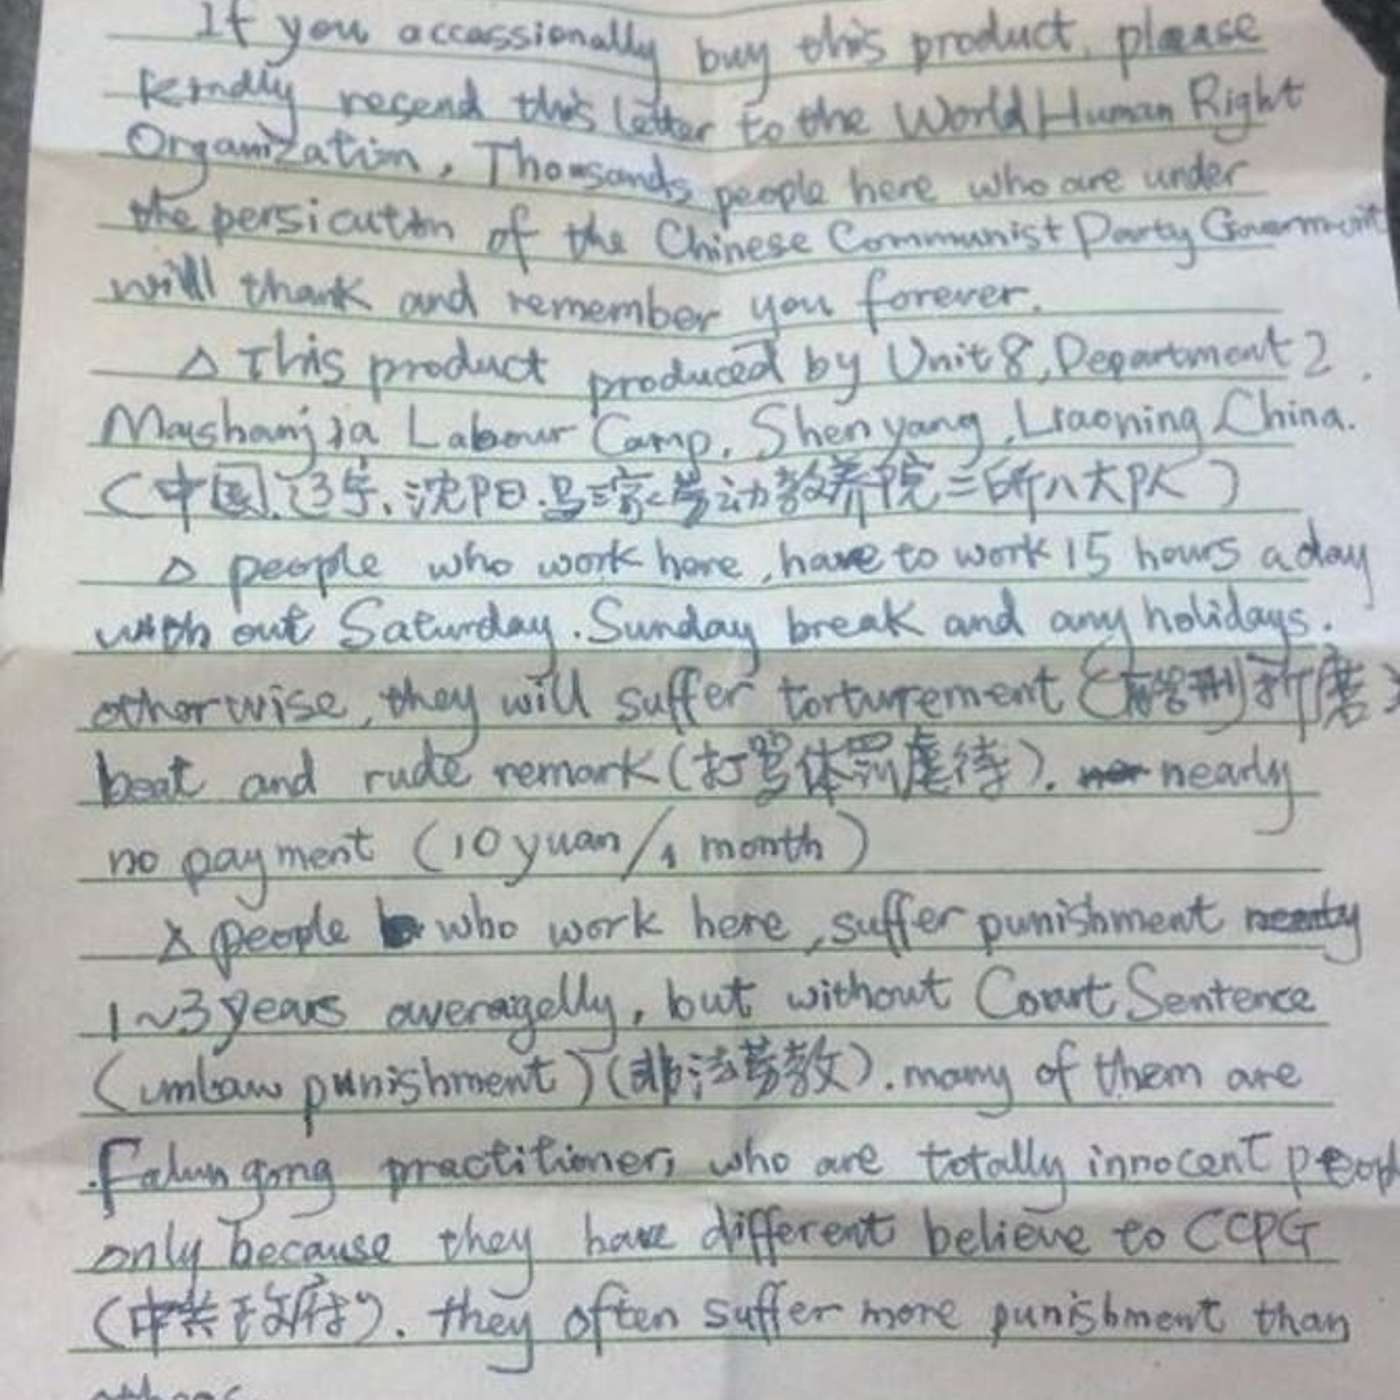 If you occassionally buy this product, please
kindly resend this letter to the World Human Right
Organization. Thousands people here who are under
the persicution of the Chinese Communist Party Government
will thank and remember you forever.
△ This product produced by Unit 8, Department 2,
Mashanjia Labour Camp, Shenyang, Liaoning, China.
(中国.辽宁.沈阳.马三家劳动教养院二所八大队)
△ people who work here, have to work 15 hours a day
with out Saturday. Sunday break and any holidays.
otherwise, they will suffer torturement (折磨)
beat and rude remark (打骂体罚虐待). nearly
no payment (10 yuan/1 month)
△ people who work here, suffer punishment nearly
1~3 years averagelly, but without Court Sentence
(unlaw punishment) (非法劳教). many of them are
Falun gong practitioner, who are totally innocent people
only because they have different believe to CCPG
(中共政府). they often suffer more punishment than
others.